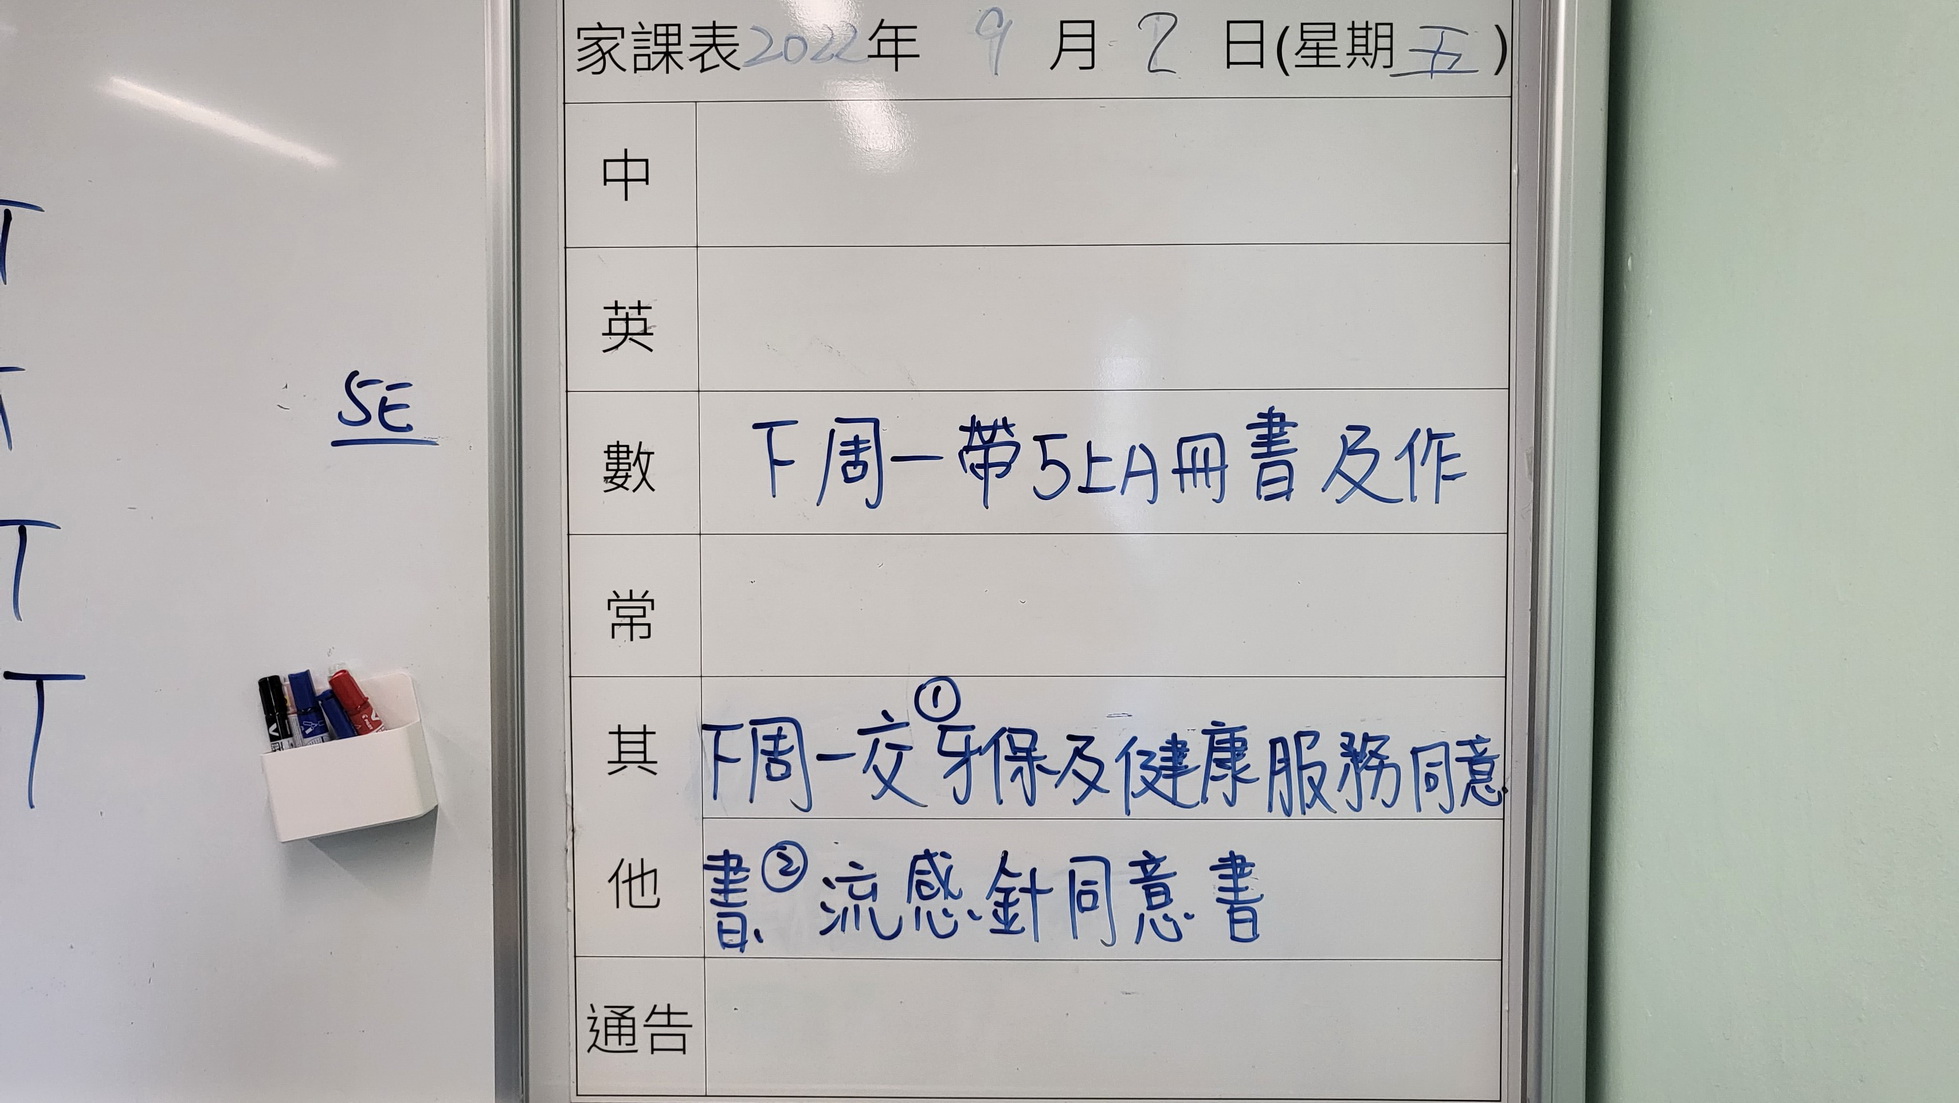 家課表2022年 9月2日(星期五)
中
英
5E
數 下周一帶5上A冊書及作
常
其 下周一交①牙保及健康服務同意
他 書②流感針同意書
通告